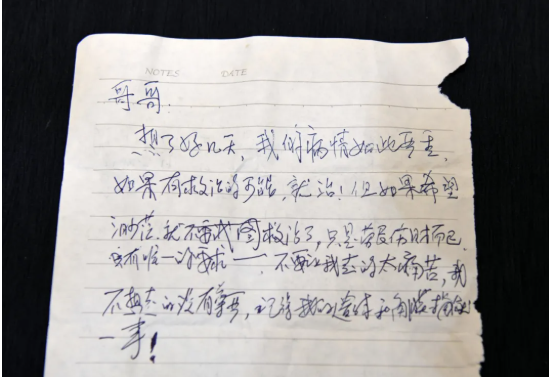 NOTES DATE
哥哥.
想了好几天,我的病情如此严重,
如果有救治的可能,就治!但如果希望
渺茫,就不要试图救治了,只是劳民伤财而已.
我有唯一的要求——不要让我走的太痛苦,我
不想走的没有尊严,记得我的遗体和角膜捐献
一事!